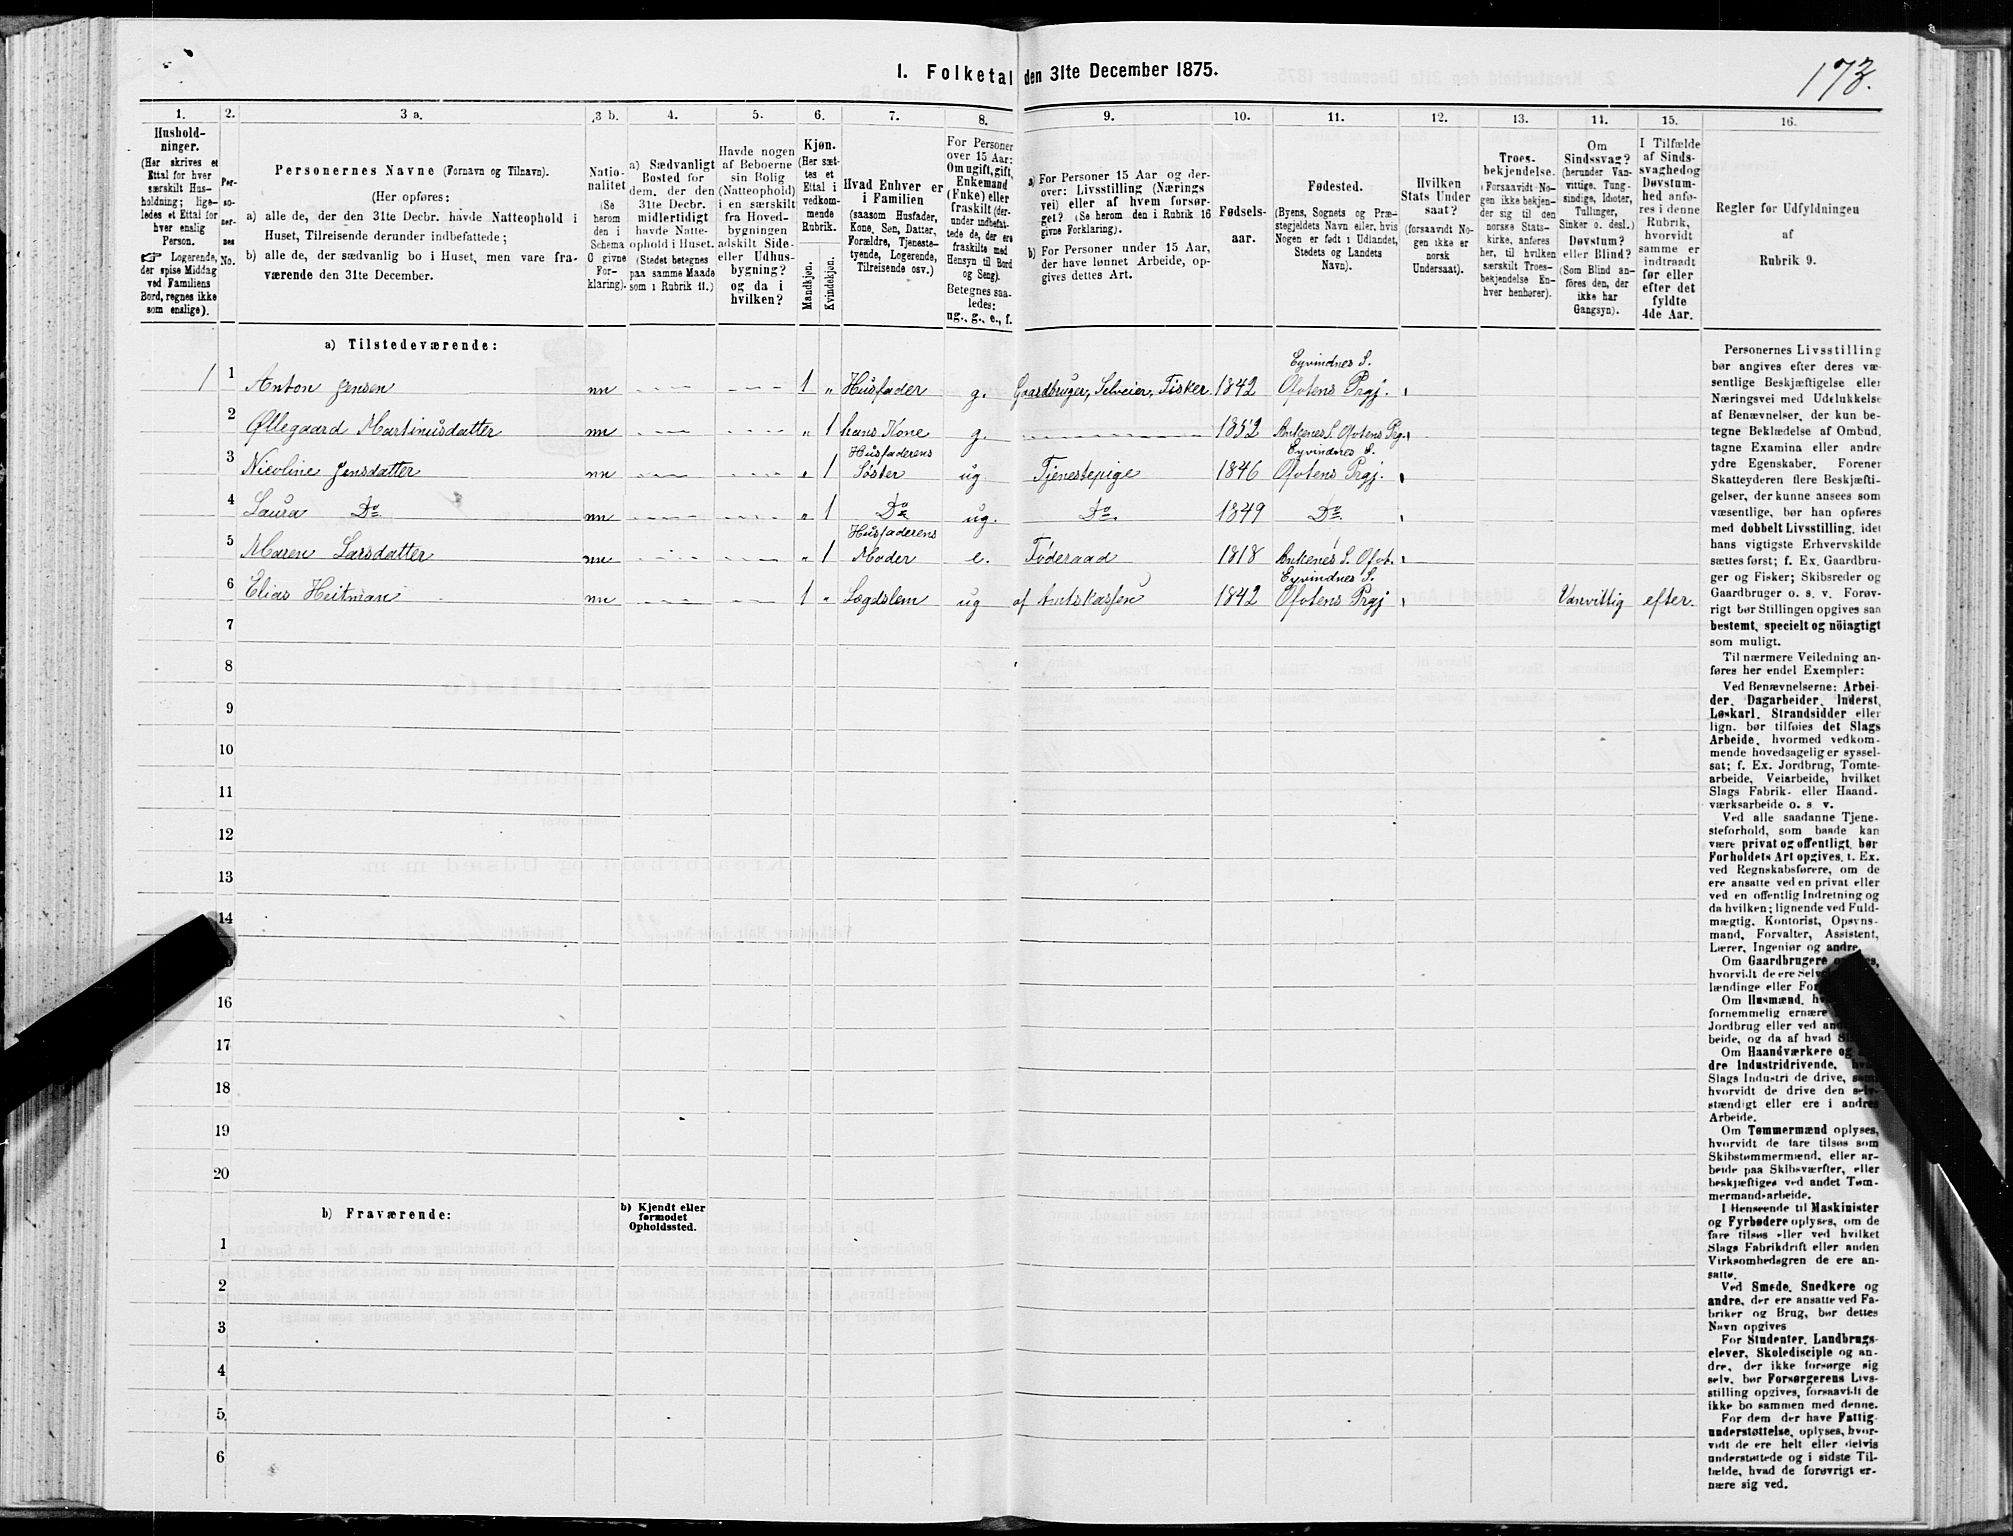 1. Folketal den 31te December 1875.
173.
1.
Hushold-
ninger.
(Her skrives et
Ettal for hver
særskilt Hus-
holdning; lige-
ledes et Ettal for
hver enslig
Person.
☞ Logerende,
der spise Middag
ved Familiens
Bord, regnes ikke
som enslige).
2.
Per-
so-
ner-
nes
No.
3 a.
Personernes Navne (Fornavn og Tilnavn).
(Her opføres:
a) alle de, der den 31te Decbr. havde Natteophold i
Huset, Tilreisende derunder indbefattede;
b) alle de, der sædvanlig bo i Huset, men vare fra-
værende den 31te December.
3 b.
Natio-
nalitet
(Se
herom
den i
Schema
O givne
For-
klaring).
4.
a) Sædvanligt
Bosted for
dem, der den
31te Decbr.
midlertidigt
havde Natte-
ophold i Huset.
(Stedet betegnes
paa samme Maade
som i Rubrik 11.)
5.
Havde nogen
af Beboerne
sin Bolig
(Natteophold)
i en særskilt
fra Hoved-
bygningen
adskilt Side-
eller Udhus-
bygning?
og da i
hvilken?
6.
Kjøn.
(Her sæt-
tes et
Ettal i
vedkom-
mende
Rubrik.
Mandkjøn.
Kvindekjøn.
7.
Hvad Enhver er
i Familien
(saasom Husfader,
Kone, Søn, Datter,
Forældre, Tjeneste-
tyende, Logerende,
Tilreisende osv.)
8.
For Personer
over 15 Aar:
Om ugift, gift,
Enkemand
(Enke) eller
fraskilt (der-
under indbefat-
tede de, der ere
fraskilte med
Hensyn til Bord
og Seng).
Betegnes saa-
ledes:
ug., g., e., f.
9.
a) For Personer 15 Aar og der-
over: Livsstilling (Nærings
vei) eller af hvem forsør-
get? (Se herom den i Rubrik 16
givne Forklaring).
b) For Personer under 15 Aar,
der have lønnet Arbeide, op-
gives dettes Art.
10.
Fødsels-
aar.
11.
Fødested.
(Byens, Sognets og Præ-
stegjeldets Navn eller, hvis
Nogen er født i Udlandet,
Stedets og Landets
Navn).
12.
Hvilken
Stats Under
saat?
(forsaavidt No-
gen ikke er
norsk
Undersaat).
13.
Troes-
bekjendelse.
(Forsaavidt No-
gen ikke bekjen-
der sig til den
norske Stats-
kirke, anføres
her, til hvilken
særskilt Troes-
bekjendelse En-
hver henhører).
14.
Om
Sindssvag?
(herunder Van-
vittige, Tung-
sindige, Idioter,
Tullinger,
Sinker o. desl.)
Døvstum?
eller Blind?
(Som Blind an-
føres den, der
ikke har
Gangsyn).
15.
I Tilfælde
af Sinds-
svaghed og
Døvstum-
hed anfø-
res i denne
Rubrik,
hvorvidt
samme er
indtraadt
før eller
efter det
fyldte
4de Aar.
16.
Regler for Udfyldningen
af
Rubrik 9.
a) Tilstedeværende:
1 1 Anton Jensen nn 1 „ Husfader g. Gaardbruger, Selveier, Fisker 1842 Eyvindnes S. Ofotens Prgj.
2 Øllegaard Martinusdatter nn „ 1 hans Kone g. 1852 Ankenes S. Ofotens Prg.
3 Nicoline Jensdatter nn „ 1 Husfaderens Søster ug Tjenestepige 1846 Eyvindnes S. Ofotens Prgj.
4 Laura Do nn „ 1 Do ug. Do. 1849 Do
5 Maren Larsdatter nn „ 1 Husfaderens Moder e. Føderaad 1818 Ankenes S. Ofot.
6 Elias Heitman nn 1 „ Lægdslem ug af Amtskassen 1842 Eyvindnes S. Ofotens Prgj Vanvittig efter.
7
8
9
10
11
12
13
14
16
17
18
19
20
b) Fraværende:
b) Kjendt eller
formodet
Opholdssted.
1
2
3
4
5
6
Personernes Livsstilling
bør angives efter deres væ-
sentlige Beskjæftigelse eller
Næringsvei med Udelukkelse
af Benævnelser, der kun be-
tegne Beklædelse af Ombud,
tagne Examina eller andre
ydre Egenskaber. Forener
Skatteyderen flere Beskjæfti-
gelser, der kunne ansees som
væsentlige, bør han opføres
med dobbelt Livsstilling, idet
hans vigtigste Erhvervskilde
sættes først; f. Ex. Gaardbru-
ger og Fisker; Skibsreder og
Gaardbruger o. s. v. Forøv-
rigt bør Stillingen opgives saa
bestemt, specielt og nöiagtigt
som muligt.
Til nærmere Veiledning an-
føres her endel Exempler:
Ved Benævnelserne: Arbei-
der, Dagarbeider, Inderst,
Løskarl, Strandsidder eller
lign. bør tilføies det Slags
Arbeide, hvormed vedkom-
mende hovedsagelig er syssel-
sat; f. Ex. Jordbrug, Tomte-
arbeide, Veiarbeide, hvilket
Slags Fabrik- eller Haand-
værksarbeide o. s. v.
Ved alle saadanne Tjene-
steforhold, som baade kan
være privat og offentligt, bør
Forholdets Art opgives, t. Ex.
ved Regnskabsførere, om de
ere ansatte ved en privat eller
ved en offentlig Indretning og
da hvilken; lignende ved Fuld-
mægtig, Kontorist, Opsyns-
mand, Forvalter, Assistent,
Lærer, Ingeniør og andre.
Om Gaardbrugere
hvorvidt de ere
lændinge eller
Om Husmænd,
fornemmelig ernære
Jordbrug eller ved
beide, og da af hvad
Om Haandværkere og
dre Industridrivende,
Slags Industri de drive,
hvorvidt de drive den selv-
stændigt eller ere i andres
Arbeide.
Om Tømmermænd oplyses,
hvorvidt de fare tilsøs som
Skibstømmermænd, eller ar-
beide paa Skibsværfter, eller
beskjæftiges ved andet Tøm-
mermandsarbeide.
I Henseende til Maskinister
og Fyrbødere oplyses, om de
fare tilsøs eller ved hvilket
Slags Fabrikdrift eller anden
Virksomhedsgren de ere an-
satte.
Ved Smede, Snedkere og
andre, der ere ansatte ved Fa-
briker og Brug, bør dettes
Navn opgives
For Studenter, Landbrugs-
elever, Skoledisciple og an-
dre, der ikke forsørge sig
selv, bør Forsørgerens Livs-
stilling opgives, forsaavidt de
ikke bo sammen med denne.
For dem der have Fattig-
understøttelse, oplyses, hvor-
vidt de ere helt eller delvis
understøttede og i sidste Til-
fælde, hvad de forøvrigt er-
nære sig ved.